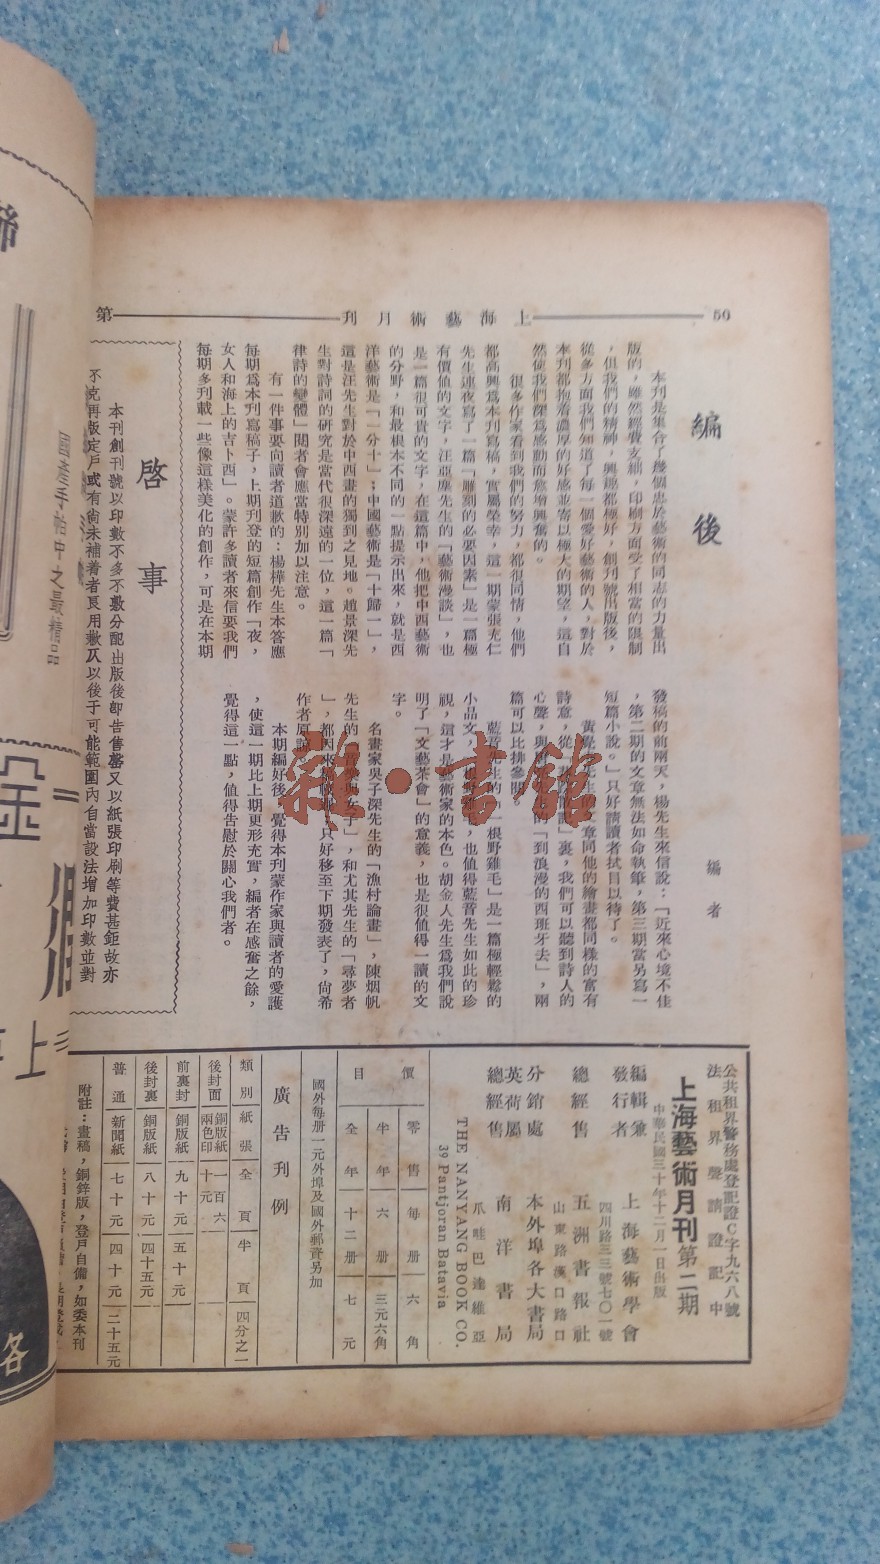 50
上海藝術月刊
第
編後
編者
本刊是集合了幾個忠於藝術的同志的力量出
版的，雖然經費支絀，印刷方面受了相當的限制
，但我們的精神，興趣都極好，創刊號出版後，
從多方面我們知道了每一個愛好藝術的人，對於
本刊都抱着濃厚的好感並寄以極大的期望，這自
然使我們深爲感動而愈增興奮的。
很多作家看到我們的努力，都很同情，他們
都高興爲本刊寫稿，實屬榮幸，這一期蒙張充仁
先生連夜寫了一篇「雕刻的必要因素」是一篇極
有價值的文字，汪亞塵先生的「藝術漫談」，也
是一篇很可貴的文字，在這篇中，他把中西藝術
的分野，和最根本不同的一點提示出來，就是西
洋藝術是「一分十」；中國藝術是「十歸一」，
這是汪先生對於中西畫的獨到之見地。趙景深先
生對詩詞的研究是當代很深遠的一位，這一篇「
律詩的變體」閱者會應當特別加以注意。
有一件事要向讀者道歉的：楊樺先生本答應
每期爲本刊寫稿子，上期刊登的短篇創作「夜，
女人和海上的吉卜西」。蒙許多讀者來信要我們
每期多刊載一些像這樣美化的創作，可是在本期
發稿的前兩天，楊先生來信說：「近來心境不佳
，第二期的文章無法如命執筆，第三期當另寫一
短篇小說。」只好請讀者拭目以待了。
黃覺先生的文章同他的繪畫都同樣的富有
詩意，從「裏，我們可以聽到詩人的
心聲，與的「到浪漫的西班牙去」，兩
篇可以比排參閱
藍音先生的「一根野雞毛」是一篇極輕鬆的
小品文，根野雞毛，也值得藍音先生如此的珍
視，這才是藝術家的本色。胡金人先生爲我們說
明了「文藝茶會」的意義，也是很值得一讀的文
字。
名畫家吳子深先生的「漁村論畫」，陳烟帆
先生的「音樂與女子」，和尤其先生的「尋夢者
」，都因來只好移至下期發表了，尚希
作者原諒。
本期編好後，覺得本刊蒙作家與讀者的愛護
，使這一期比上期更形充實，編者在感奮之餘，
覺得這一點，值得告慰於關心我們者。
啓事
本刊創刊號以印數不多不敷分配出版後卽告售罄又以紙張印刷等費甚鉅故亦
不克再版定戶或有尚未補着者良用歉仄以後于可能範圍內自當設法增加印數並對
國產手帕中之最精品
公共租界警務處登記證C字九六八號
法租界聲請證記中
上海藝術月刊第二期
中華民國三十年十二月一日出版
編輯兼發行者 上海藝術學會
四川路三三號七〇一號
總經售 五洲書報社
山東路漢口路口
分銷處 本外埠各大書局
英荷屬總經售 南洋書局
爪哇巴達維亞
THE NANYANG BOOK CO.
39 Pantjoran Batavia
價目
零售 每册 六角
半年 六册 三元六角
全年 十二册 七元
國外每册一元外埠及國外郵資另加
廣告刊例
類別 紙張 全頁 半頁 四分之一
後封面 銅版紙兩色印 一百六十元
前裏封 銅版紙 九十元 五十元
後封裏 銅版紙 八十元 四十五元
普通 新聞紙 七十元 四十元 二十五元
附註：畫稿，銅鋅版，登戶自備，如委本刊
各
雜·書館